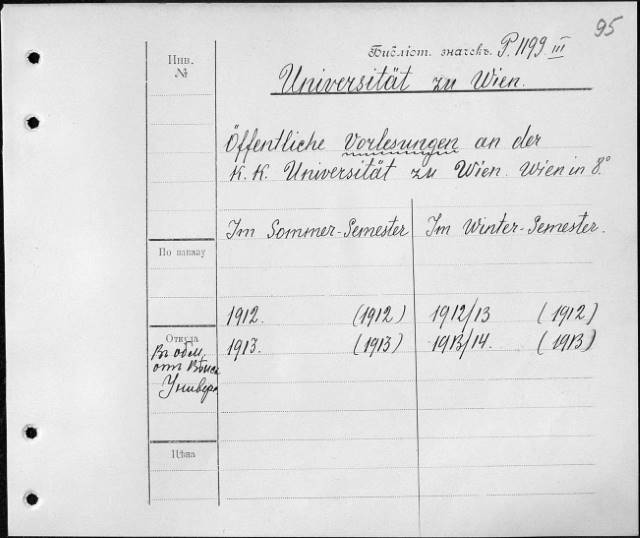 95
Библіот. значекъ. P. 1199 III
Инв.
№
Universität zu Wien.
Öffentliche Vorlesungen an der
K. K. Universität zu Wien. Wien in 8°
Im Sommer-Semester Im Winter-Semester.
По заказу
1912. (1912) 1912/13 (1912)
Откуда
1913. (1913) 1913/14. (1913)
Въ обм.
от Вѣнск
Универ
Цѣна